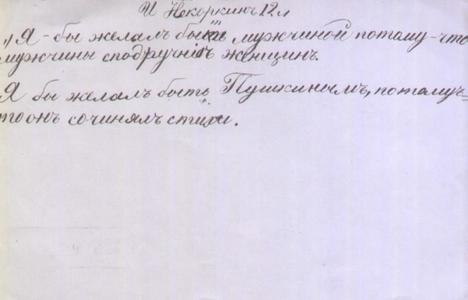 И Некоркинъ 12 л
„Я-бы желалъ быть „мужчиной" потому-что
мужчины сподручнѣе женщинъ.
Я бы желалъ быть „Пушкинымъ", потому-ч
то онъ сочинялъ стихи.